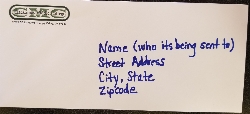 CMC
Name (who its being sent to)
Street Address
City, State
Zipcode